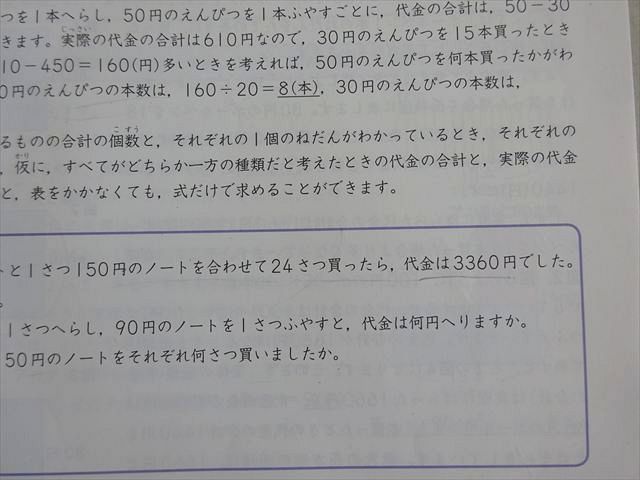 つを1本へらし，50円のえんぴつを1本ふやすごとに，代金の合計は，50－30
きます。実際の代金の合計は610円なので，30円のえんぴつを15本買ったとき
10－450＝160(円)多いときを考えれば，50円のえんぴつを何本買ったかがわ
0円のえんぴつの本数は，160÷20＝8(本)，30円のえんぴつの本数は，
るものの合計の個数と，それぞれの1個のねだんがわかっているとき，それぞれの
，仮に，すべてがどちらか一方の種類だと考えたときの代金の合計と，実際の代金
と，表をかかなくても，式だけで求めることができます。
トと1さつ150円のノートを合わせて24さつ買ったら，代金は3360円でした。
。
1さつへらし，90円のノートを1さつふやすと，代金は何円へりますか。
50円のノートをそれぞれ何さつ買いましたか。